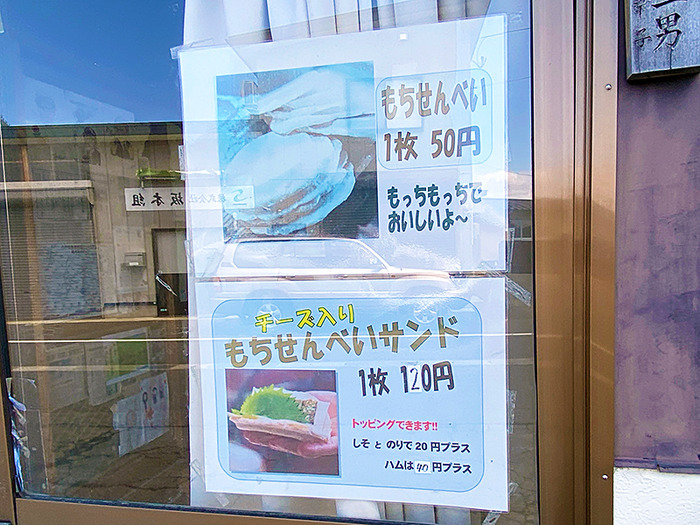 もちせんべい
1枚 50円
もっちもっちで
おいしいよ～
チーズ入り
もちせんべいサンド
1枚 120円
トッピングできます!!
しそ と のりで 20 円プラス
ハムは 40 円プラス
株式会社 坂本組
一男
子